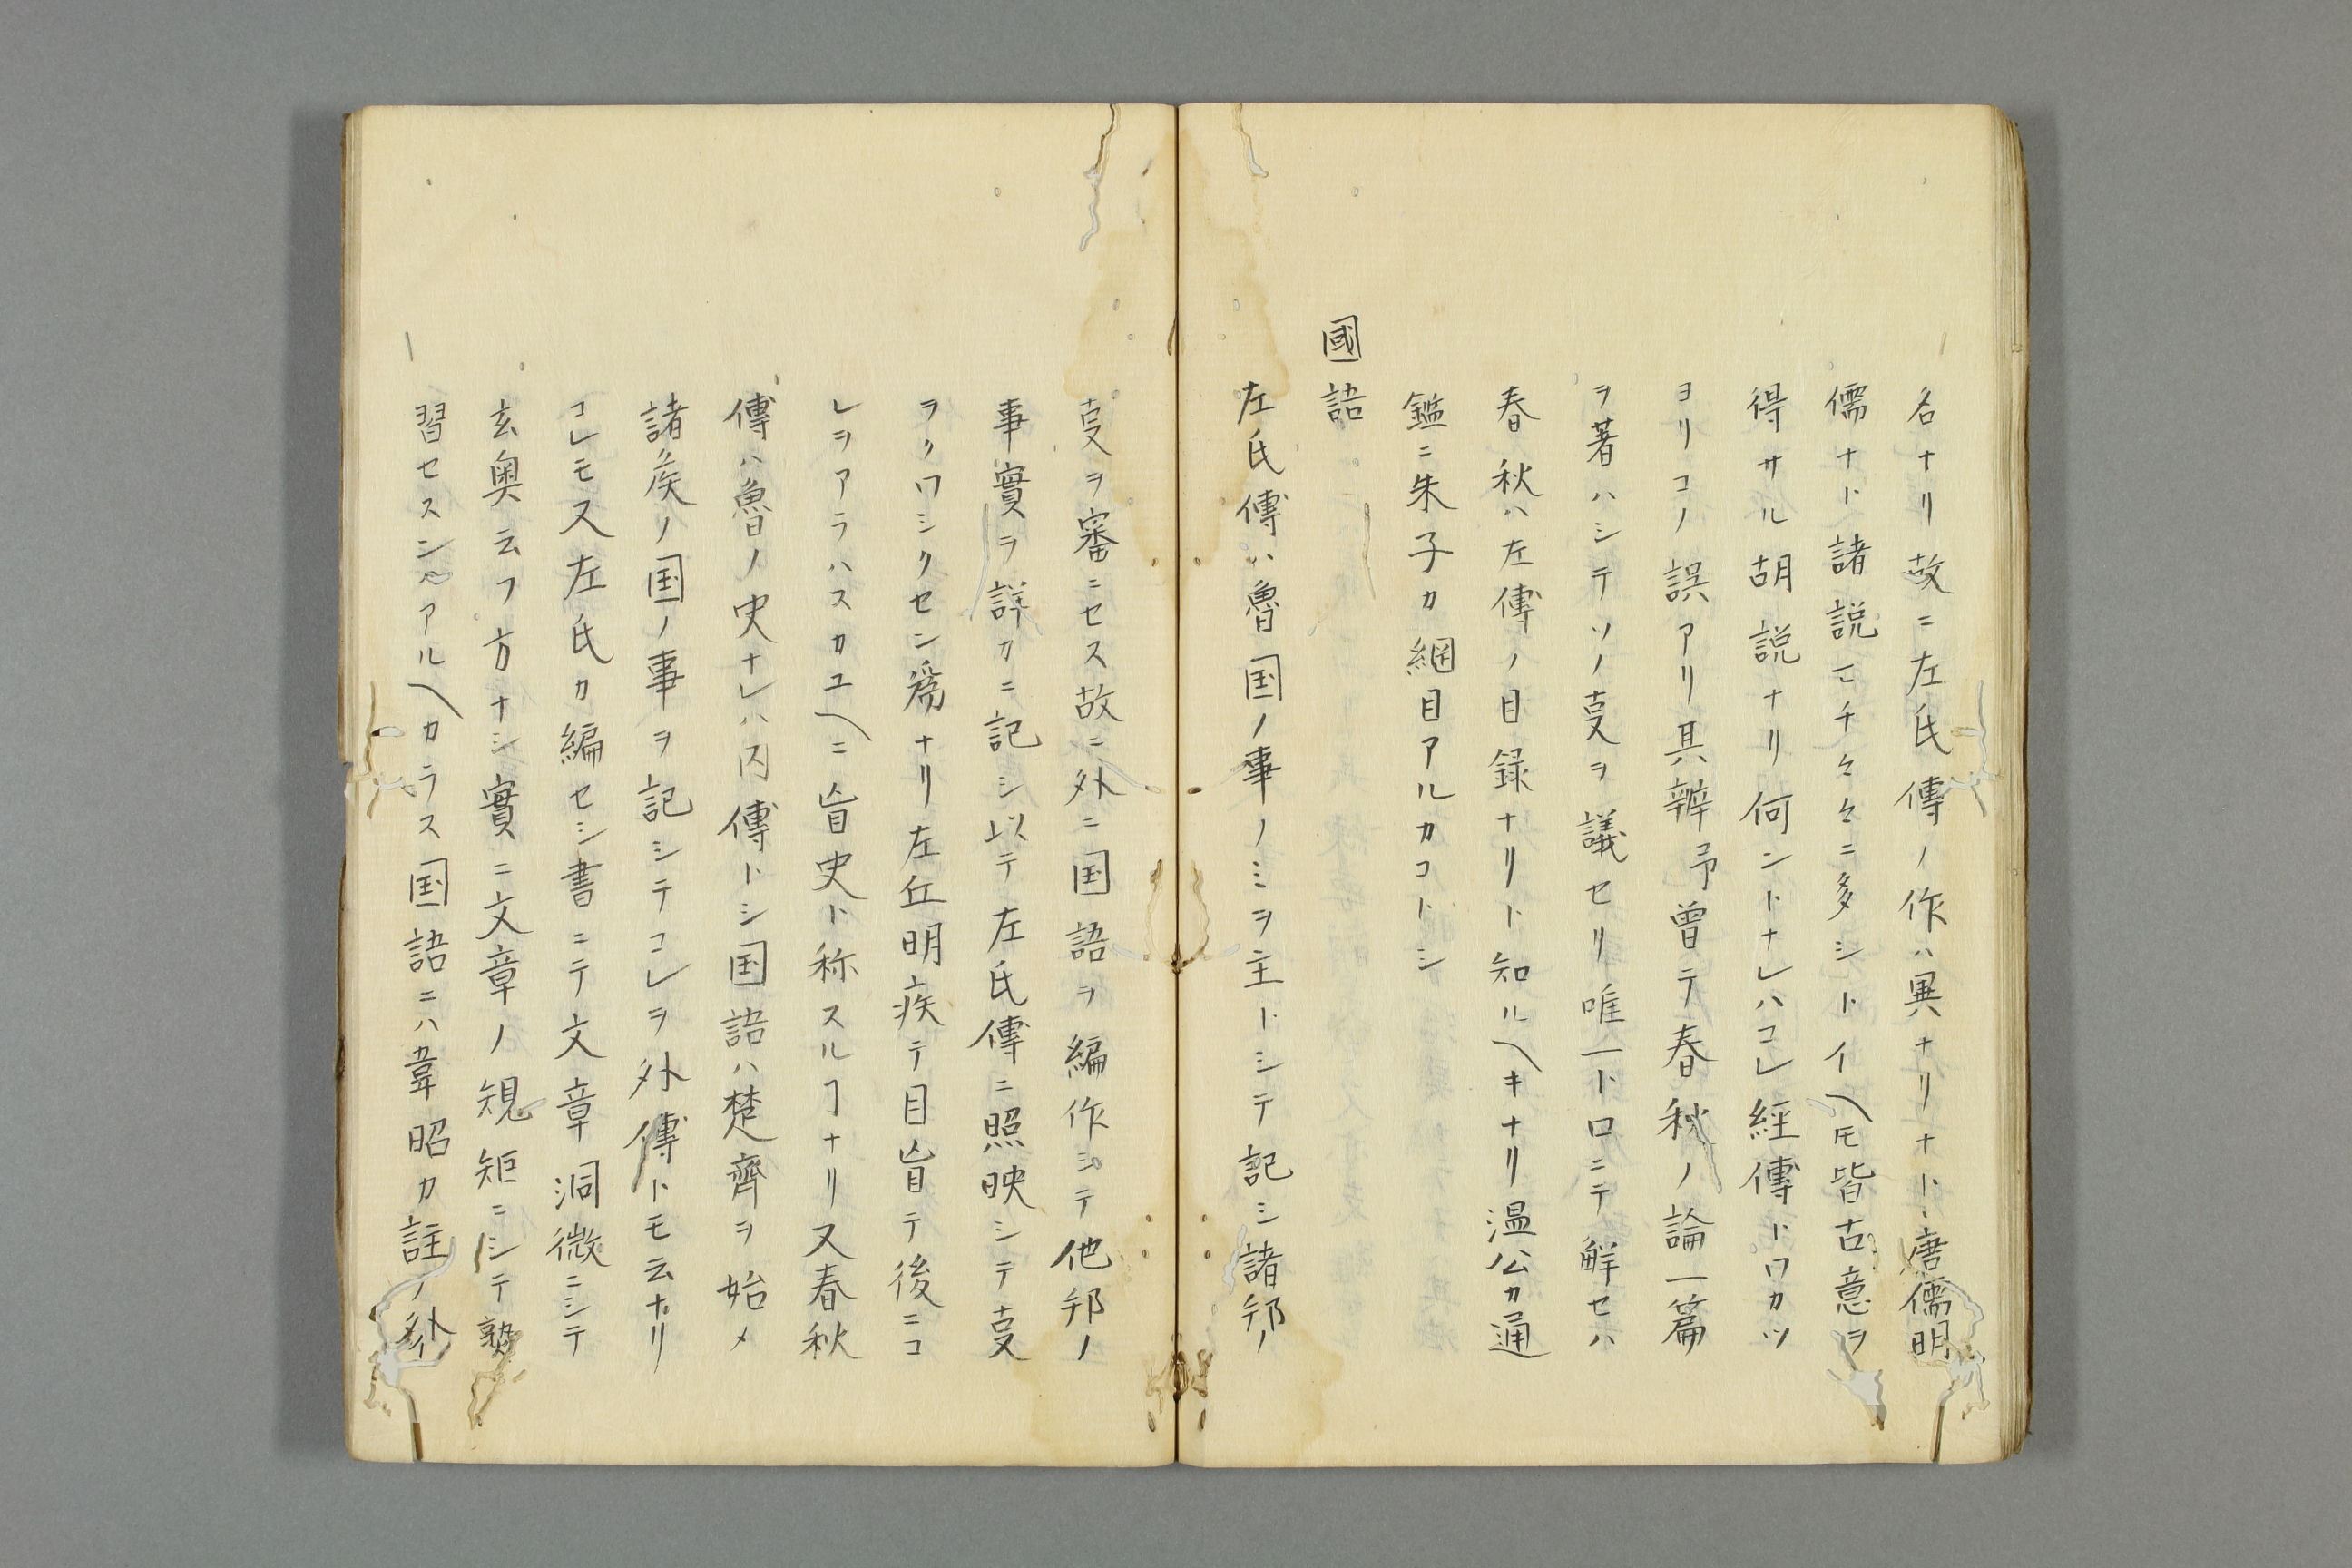 名ナリ故ニ左氏傳ノ作ハ異ナリナト唐儒明
儒ナト諸説マチ々々ニ多シトイヘ𪜈皆古意ヲ
得サル胡説ナリ何ントナレハコレ経傳トワカツ
ヨリコノ誤アリ其辨予曽テ春秋ノ論一篇
ヲ著ハシテソノ㕝ヲ議セリ唯一ト口ニテ解セハ
春秋ハ左傳ノ目録ナリト知ルヘキナリ温公カ通
鑑ニ朱子カ綱目アルカコトシ
國語
左氏傳ハ魯国ノ事ノミヲ主トシテ記シ諸邦ノ
㕝ヲ審ニセス故ニ外ニ国語ヲ編作シテ他邦ノ
事實ヲ詳カニ記シ以テ左氏傳ニ照映シテ㕝
ヲクワシクセン為ナリ左丘明疾テ目盲テ後ニコ
レヲアラハスカユヘニ盲史ト称スルヿナリ又春秋
傳ハ魯ノ史ナレハ内傳トシ国語ハ楚齊ヲ始メ
諸矦ノ国ノ事ヲ記シテコレヲ外傳トモ云ナリ
コレモ又左氏カ編セシ書ニテ文章洞微ニシテ
玄奥云フ方ナシ實ニ文章ノ規矩ニシテ熟
習セスンハアルヘカラス国語ニハ韋昭カ註ノ外